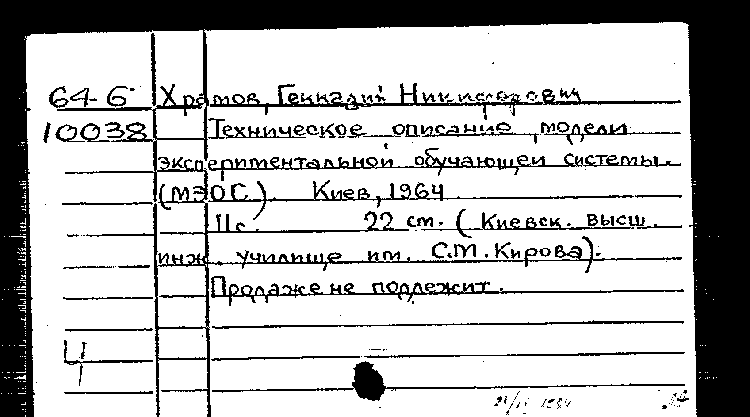 64-6 Храмов, Геннадий Никифорович
10038 Техническое описание модели
экспериментальной обучающей системы.
(МЭОС). Киев, 1964
11с. 22 ст. (Киевск. высш.
инж. училище им. С.М. Кирова).
Продаже не подлежит.
Ч